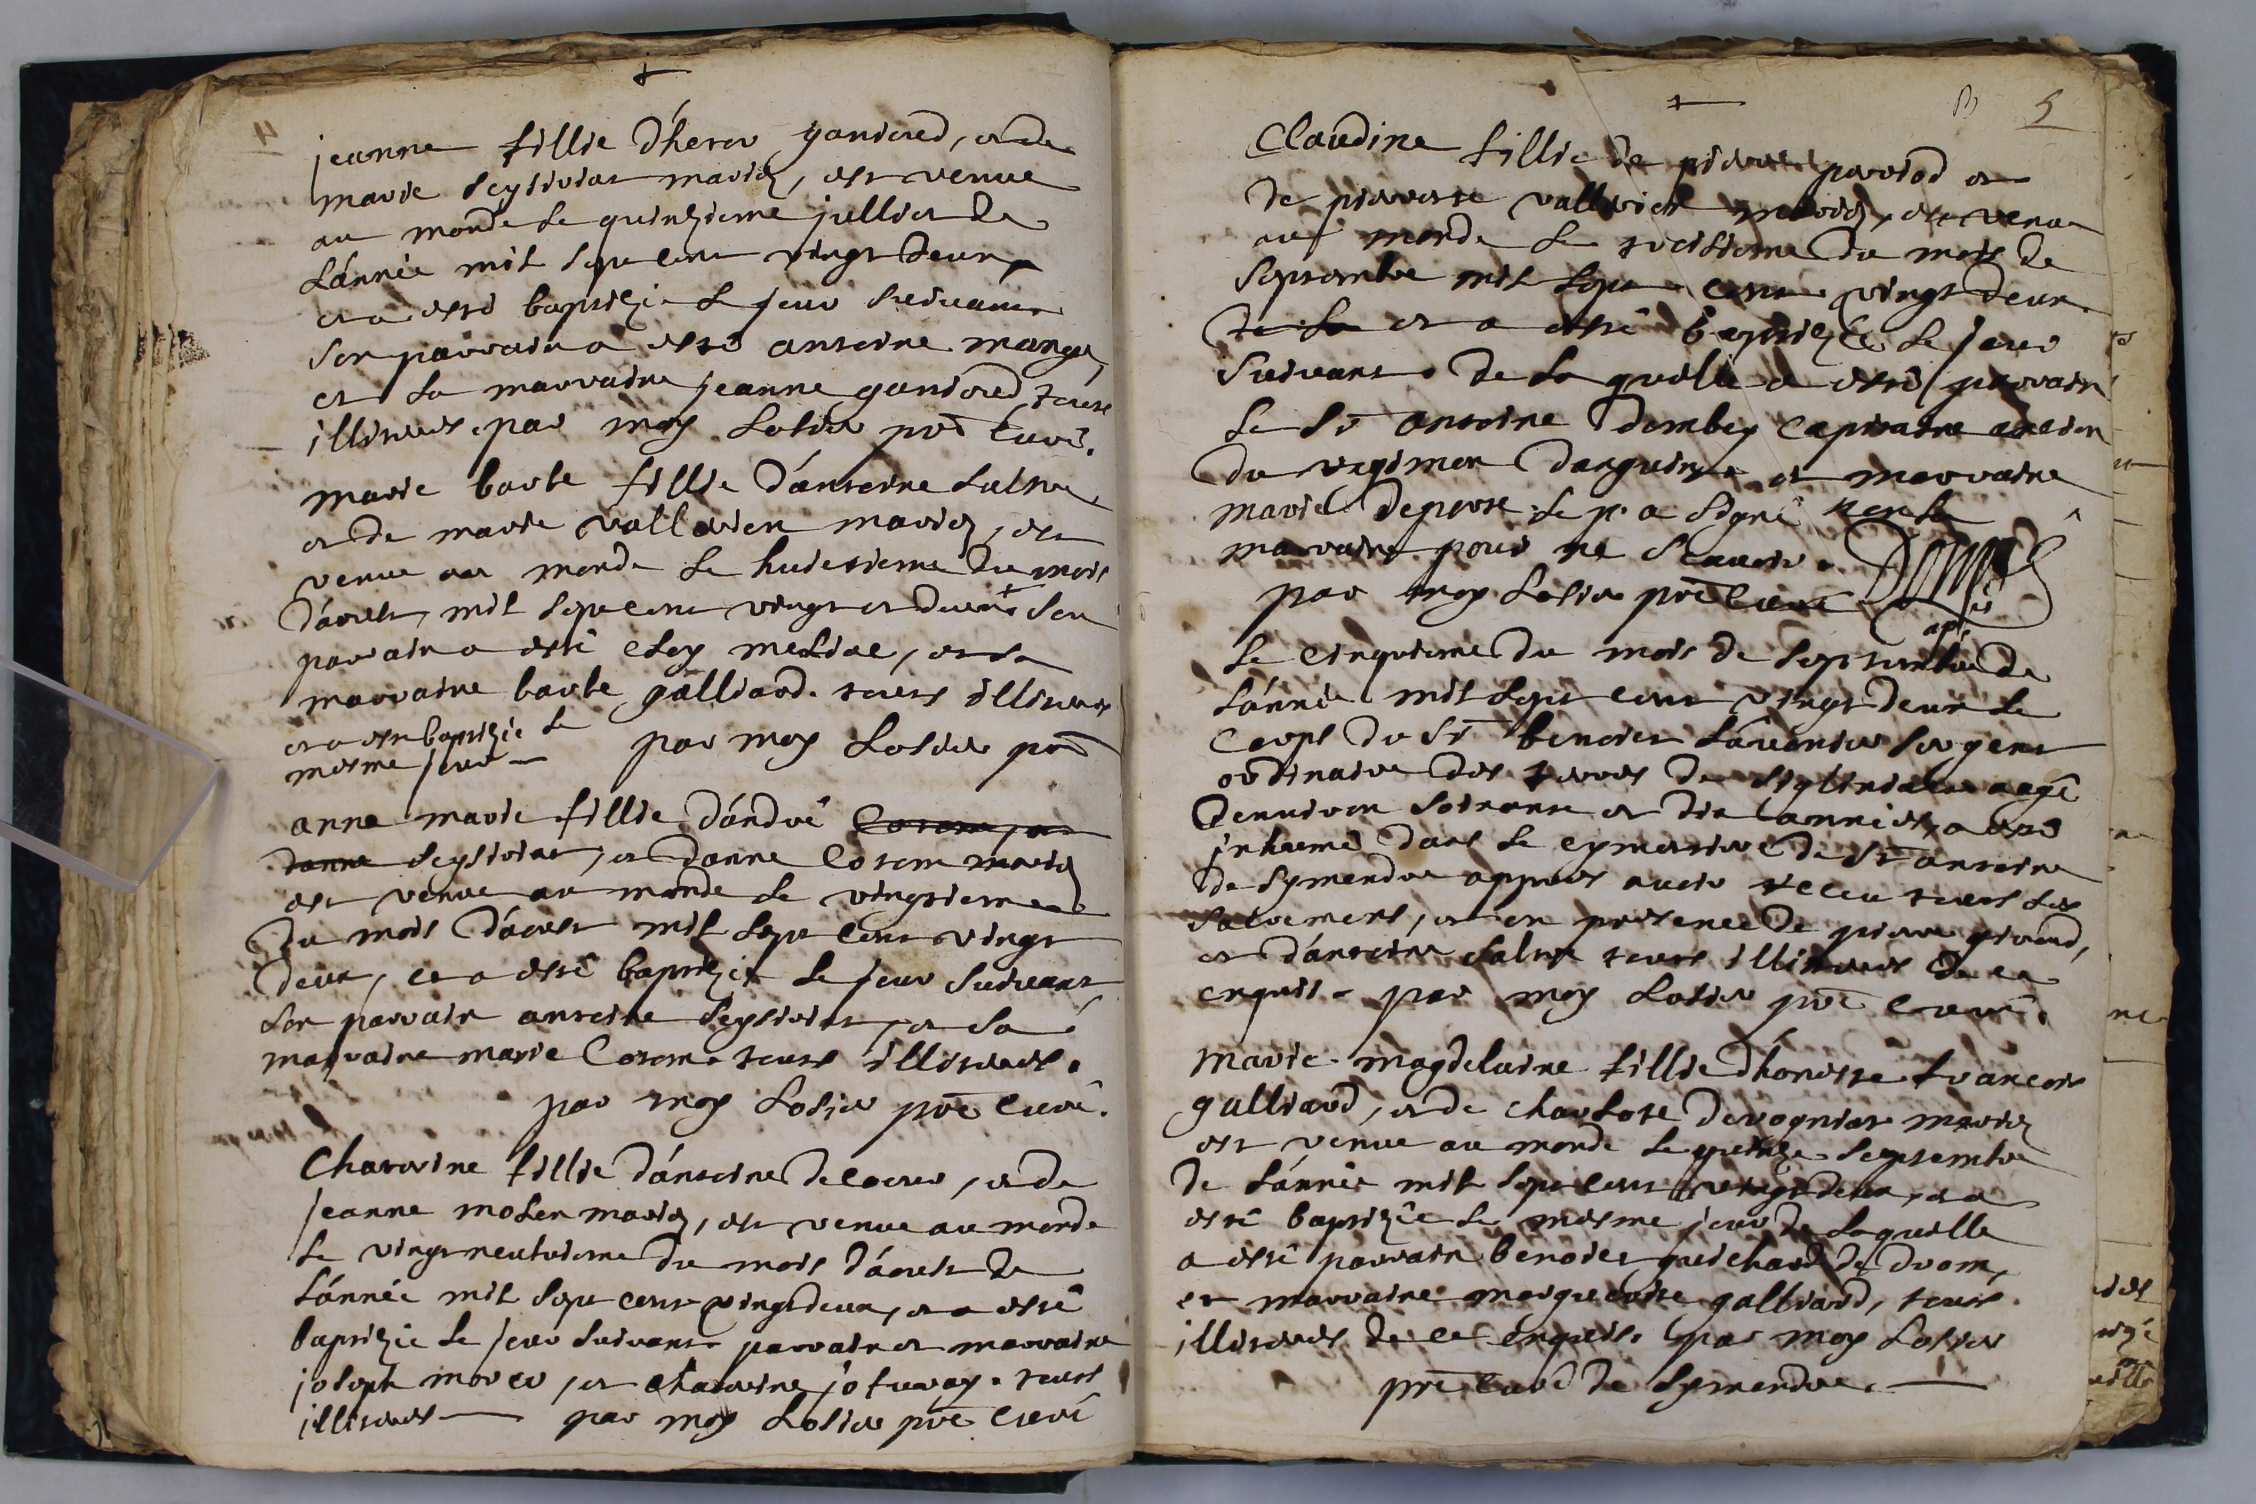 jeanne fillie d'herco ganioud, et de
marie seysivias mariez, est venue
au monde le quinzieme jullier de
l'année mil sept cent vingt deux,
et a esté baptizée le jour suivant
son parrain a esté antoine mange,
et sa marraine jeanne ganioud, tous
illitrees. par moy Losiee pre curé.
marie barbe fillie d'antoine sulne
et de marie vallavien mariez, est
venue au monde le huictieme du mois
d'aoust, mil sept cent vingt et deux + son
parrain a esté eloy , et sa
marraine barbe galliard. tous illitrees
et a este baptizée le
mesme jour — par moy Losiee pre
anne marie fillie d'andré
seysivias, et d'anne Coron mariez
est venue au monde le vingtieme
du mois d'aoust mil sept cent vingt
deux, et a esté baptizée le jour suivant
son parrain antoine seysivias, et sa
marraine marie Coron. tous illitrees.
par moy Losiee pre curé.
Chaterine fillie d'antoine de cour, et de
jeanne molen mariez, est venue au monde
le vingt neufvieme du mois d'aoust de
l'année mil sept cent vingt deux, et a esté
baptizée le jour suivant parrain et marraine
joseph morer, et Chaterine jofuray. tous
illitrees — par moy Losiee pre curé
5
Claudine fillie de pierre parriod et
de pierrette mariez, est venue
au monde le troisieme du mois de
septembre mil sept cent vingt deux
et a esté baptizée le jour
suivant. de la quelle a esté parrain
le Sr antoine dombey capitaine ancien
du regiment danguin et marraine
marie depere. le p. a signé non la
marraine pour ne scavoir.
par moy Losiee pre curé
Le cinquieme du mois de septembre de
l'année mil sept cent vingt deux le
corps du Sr benoict Lavenier sergent
ordinaire des terres de aagé
d'environ soixante et dix années, a esté
inhumé dans le cymetiere de St antoine
de Symendre appres avoir receu tous les
sacrements, et en presence de pierre pirоud,
et d'antoine sulne tous illitrees de ce
enquis. par moy Losiee pre curé.
Marie magdelaine fillie d'honeste francois
galliard, et de charlote devogniat mariez
est venue au monde le quinze septembre
de l'année mil sept cent vingt deux, et a
esté baptizée le mesme jour de laquelle
a esté parrain benoict guichard de drom,
et marraine marguerite galliard, tous
illitrees de ce enquis. par moy Losiee
pre curé de Symendre. —